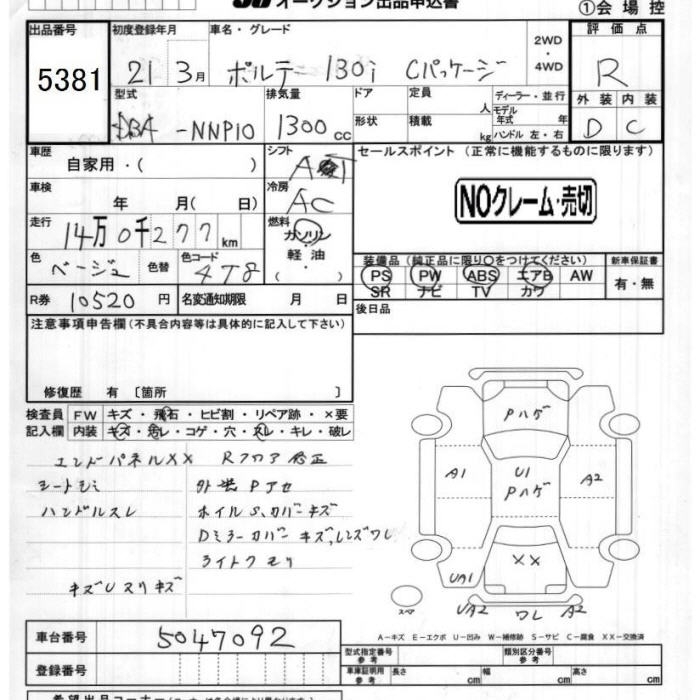 オークション出品申込書
①会場控
出品番号 初度登録年月 車名・グレード 2WD ・ 4WD 評価点
5381 21 3月 ポルテ 130i Cパッケージ R
型式 排気量 ドア 定員 人 ディーラー・並行 外装 内装
DBA -NNP10 1300 CC 形状 積載 kg モデル年式 年 ハンドル 左・右 D C
車歴 シフト セールスポイント (正常に機能するものに限ります)
自家用・( )
車検 冷房 NOクレーム・売切
年 月( 日) AC
走行 14万0千277km 燃料 ガソリン・軽油・( )
装備品 (純正品に限り○をつけてください) 新車保証書
色 ベージュ 色替 色コード 4T8 PS PW ABS エアB AW 有・無
SR ナビ TV カワ
R券 10520円 名変通知期限 月 日 後日品
注意事項申告欄(不具合内容等は具体的に記入して下さい)
修復歴 有 〔箇所 〕
検査員 FW キズ・飛石・ヒビ割・リペア跡・×要
記入欄 内装 キズ・汚レ・コゲ・穴・スレ・キレ・破レ
エンドパネルXX Rフロア修正
シートシミ 外装Pアセ
ハンドルスレ ホイルS、カバーキズ
Dミラーカバーキズ、レンズワレ
ライトクモリ
キズUスリキズ
Pハゲ
A1 U1 A2
Pハゲ
XX
UA1
スペア UA2 ワレ A2
A－キズ E－エクボ U－凹み W－補修跡 S－サビ C－腐食 XX－交換済
車台番号 5047092 型式指定番号 参考 類別区分番号 参考
登録番号 車庫証明用 参考 長さ cm 幅 cm 高さ cm